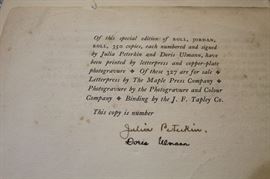 Of this special edition of ROLL, JORDAN,
ROLL, 350 copies, each numbered and signed
by Julia Peterkin and Doris Ulmann, have
been printed by letterpress and copper-plate
photogravure ❖ Of these 327 are for sale ❖
Letterpress by The Maple Press Company ❖
Photogravure by the Photogravure and Colour
Company ❖ Binding by the J. F. Tapley Co.
This copy is number
Julia Peterkin.
Doris Ulmann